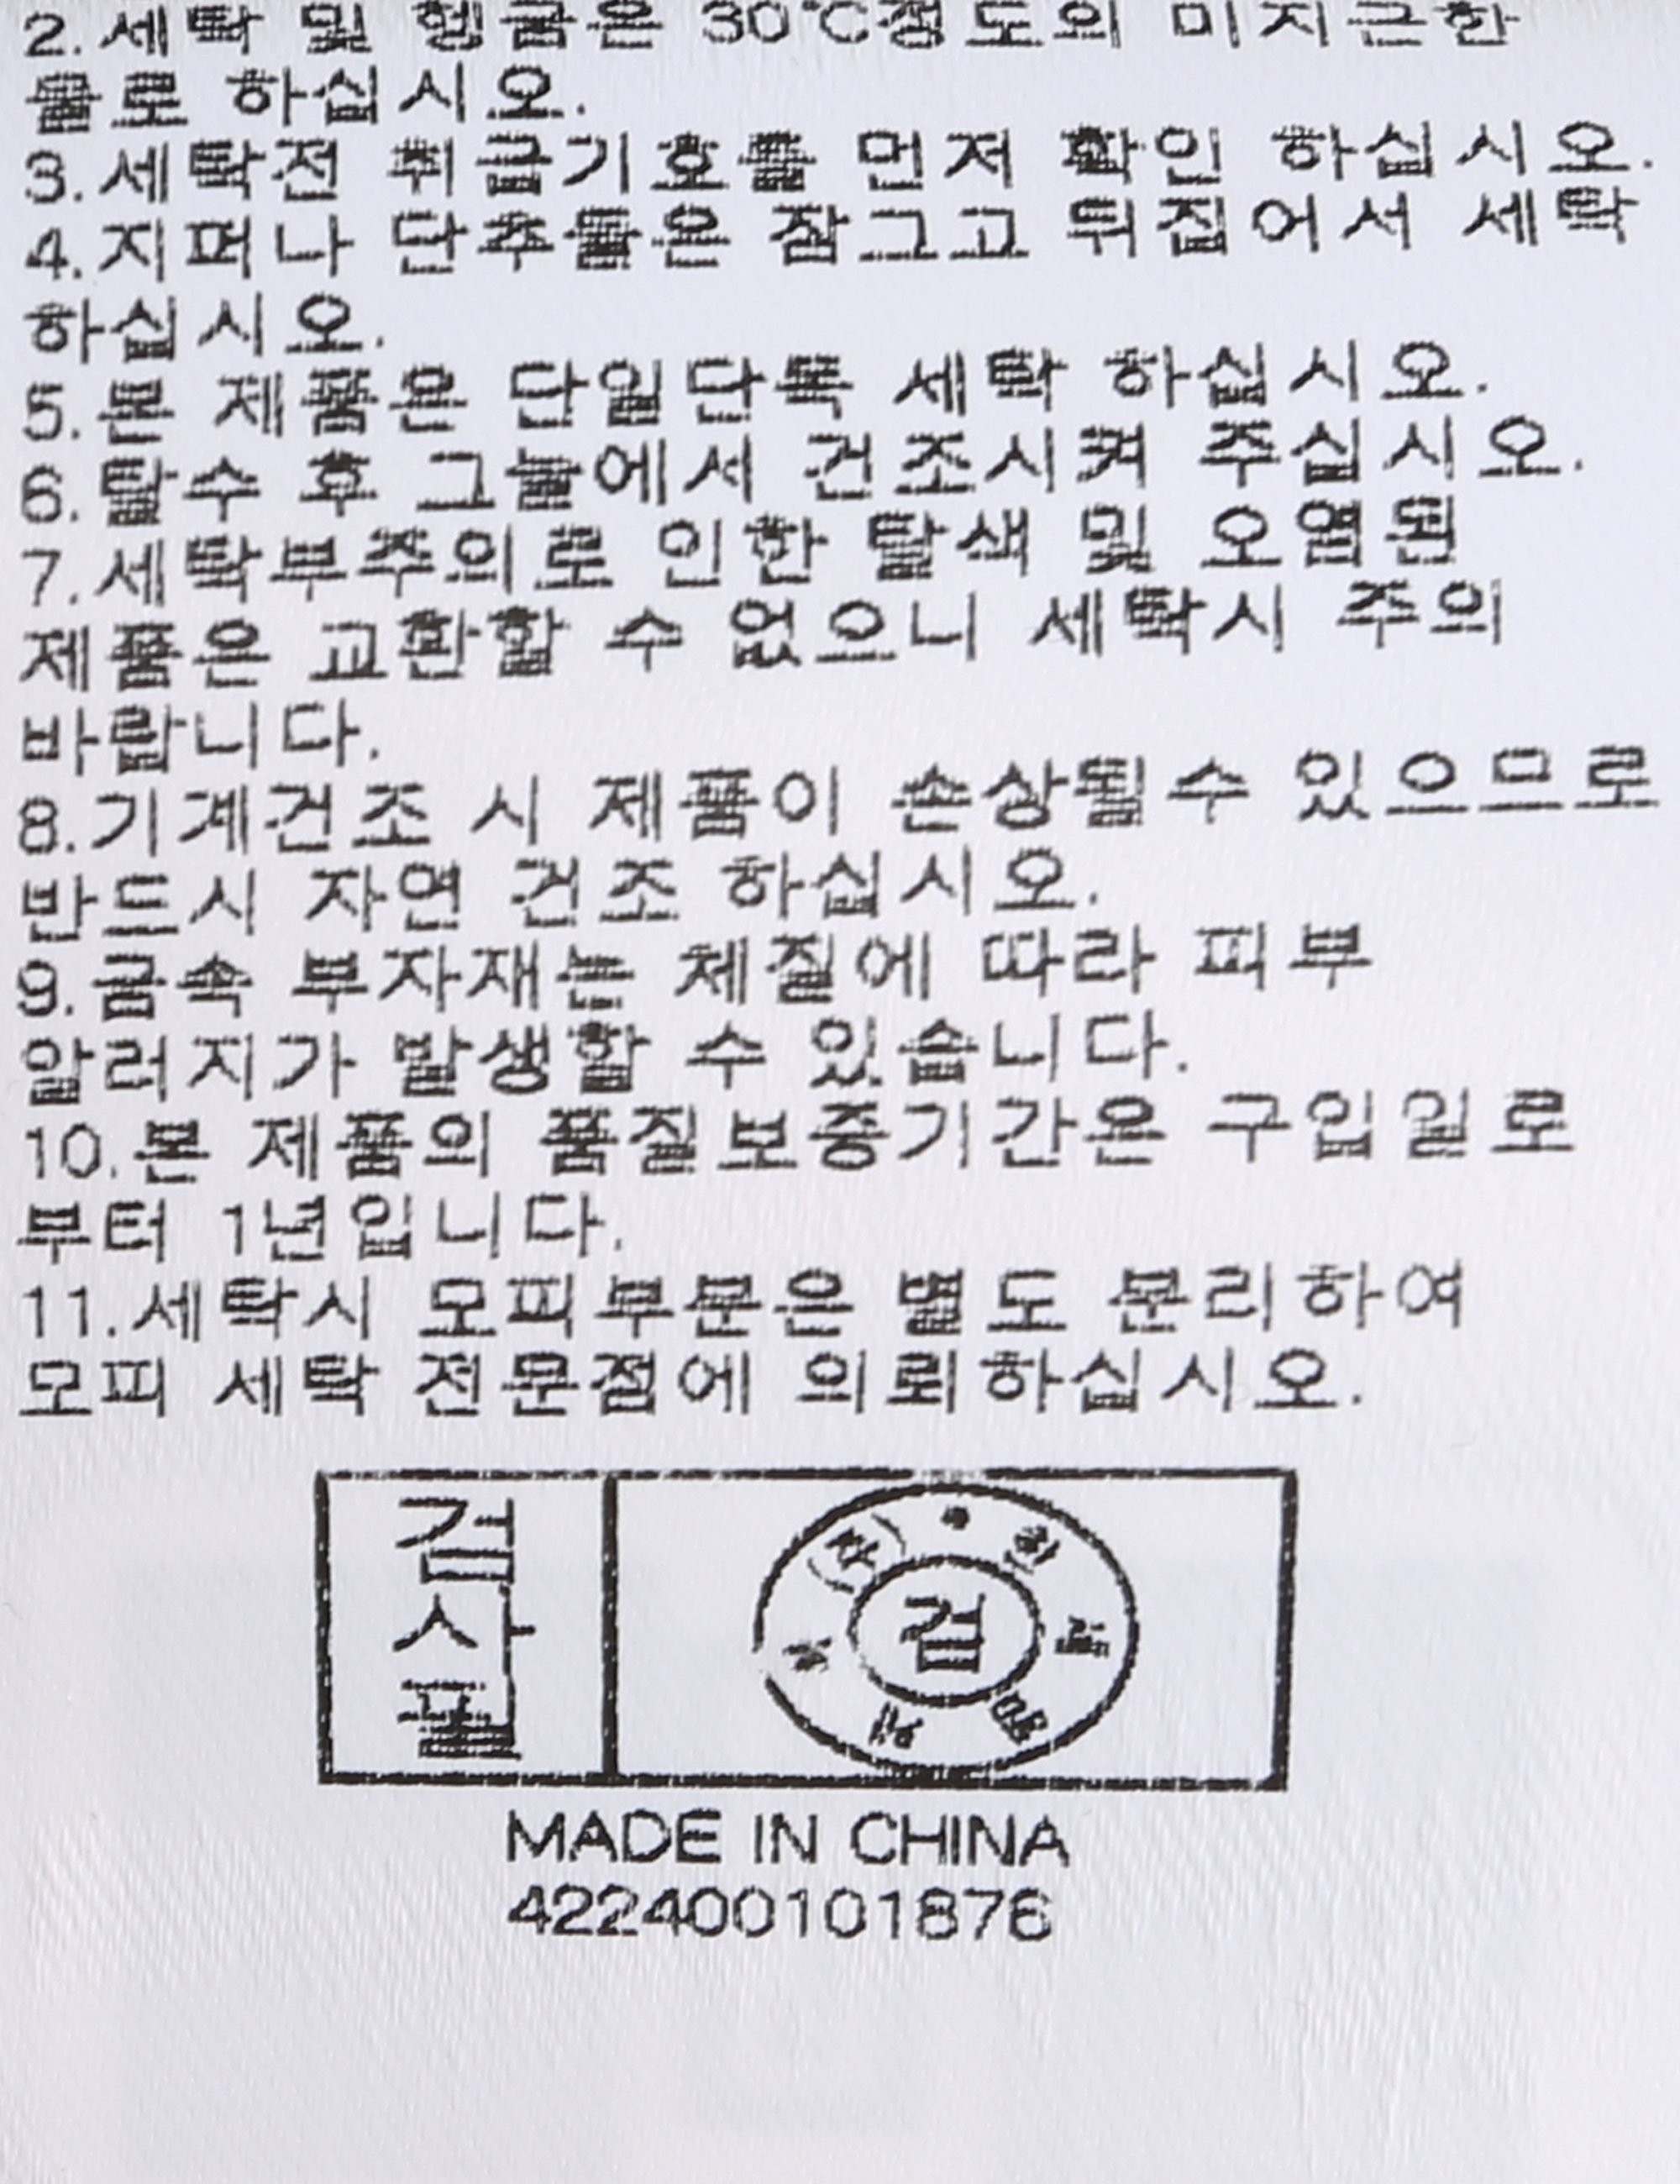 2.세탁 및 헹굼은 30℃정도의 미지근한
물로 하십시오.
3.세탁전 취급기호를 먼저 확인 하십시오.
4.지퍼나 단추들은 잠그고 뒤집어서 세탁
하십시오.
5.본 제품은 단일단독 세탁 하십시오.
6.탈수 후 그늘에서 건조시켜 주십시오.
7.세탁부주의로 인한 탈색 및 오염된
제품은 교환할 수 없으니 세탁시 주의
바랍니다.
8.기계건조 시 제품이 손상될수 있으므로
반드시 자연 건조 하십시오.
9.금속 부자재는 체질에 따라 피부
알러지가 발생할 수 있습니다.
10.본 제품의 품질보증기간은 구입일로
부터 1년입니다.
11.세탁시 모피부분은 별도 분리하여
모피 세탁 전문점에 의뢰하십시오.
검사필
검
MADE IN CHINA
422400101876